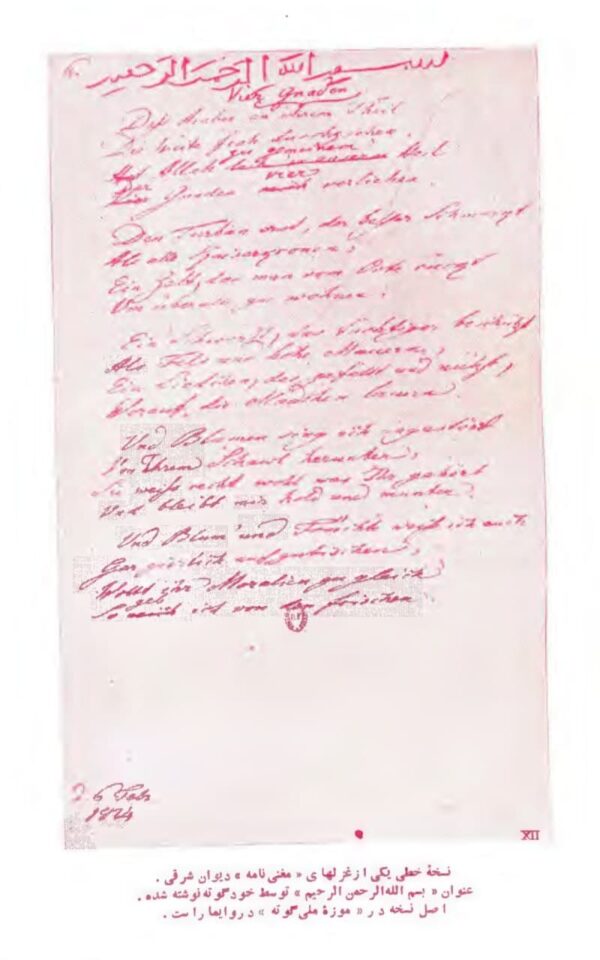 بسم الله الرحمن الرحیم
Vier Gnaden
Daß Araber an ihrem Theil
Die Weite froh durchziehen,
zu gemeinem
Hat Allah Heil
vier
Der Gnaden verliehen.
Den Turban erst, der besser schmückt
Als alle Kaiserkronen;
Ein Zelt, das man vom Orte rückt
Um überall zu wohnen;
Ein Schwerdt, das tüchtiger beschützt
Als Fels und hohe Mauern;
Ein Liedchen, das gefällt und nützt,
Worauf die Mädchen lauern.
Und Blumen sing ich ungestört
Von Ihrem Schawl herunter,
Sie weiß recht wohl was Ihr gehört
Und bleibt mir hold und munter.
Und Blum' und Früchte weiß ich euch
Gar zierlich aufzutischen,
Wollt ihr Moralien zugleich
geb
So ich von den frischen.
6 Febr
XII
نسخهٔ خطی یکی از غزلهای « مغنی‌نامه » دیوان شرقی .
عنوان « بسم الله الرحمن الرحیم » توسط خود گوته نوشته شده .
اصل نسخه در « موزهٔ ملی گوته » در وایمار است .